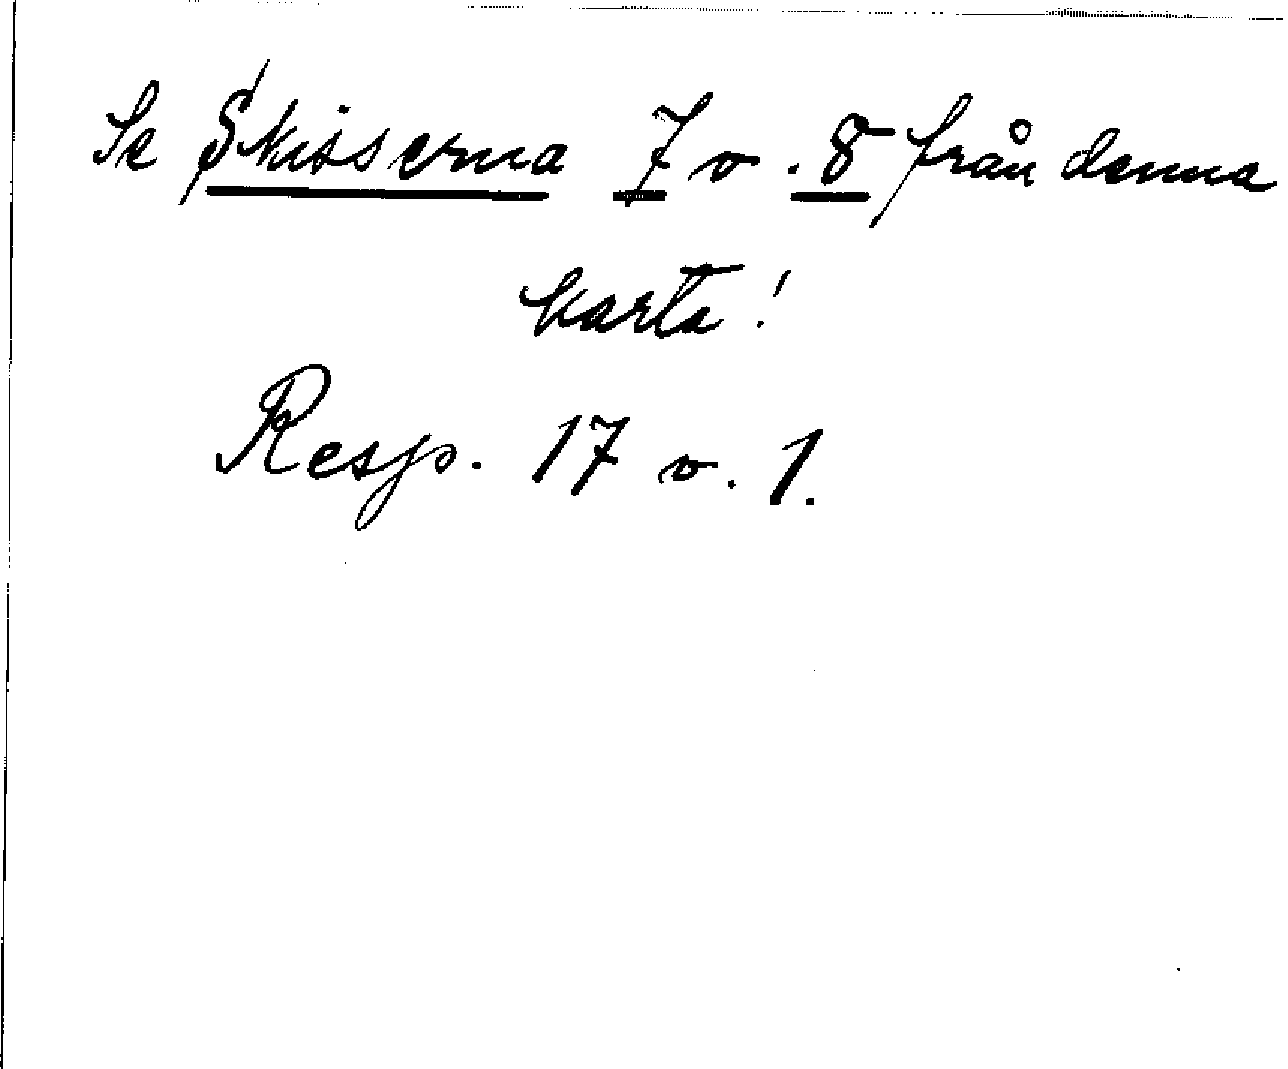 Se Skisserna 7 o. 8 från denna
karta!
Resp. 17 o. 1.